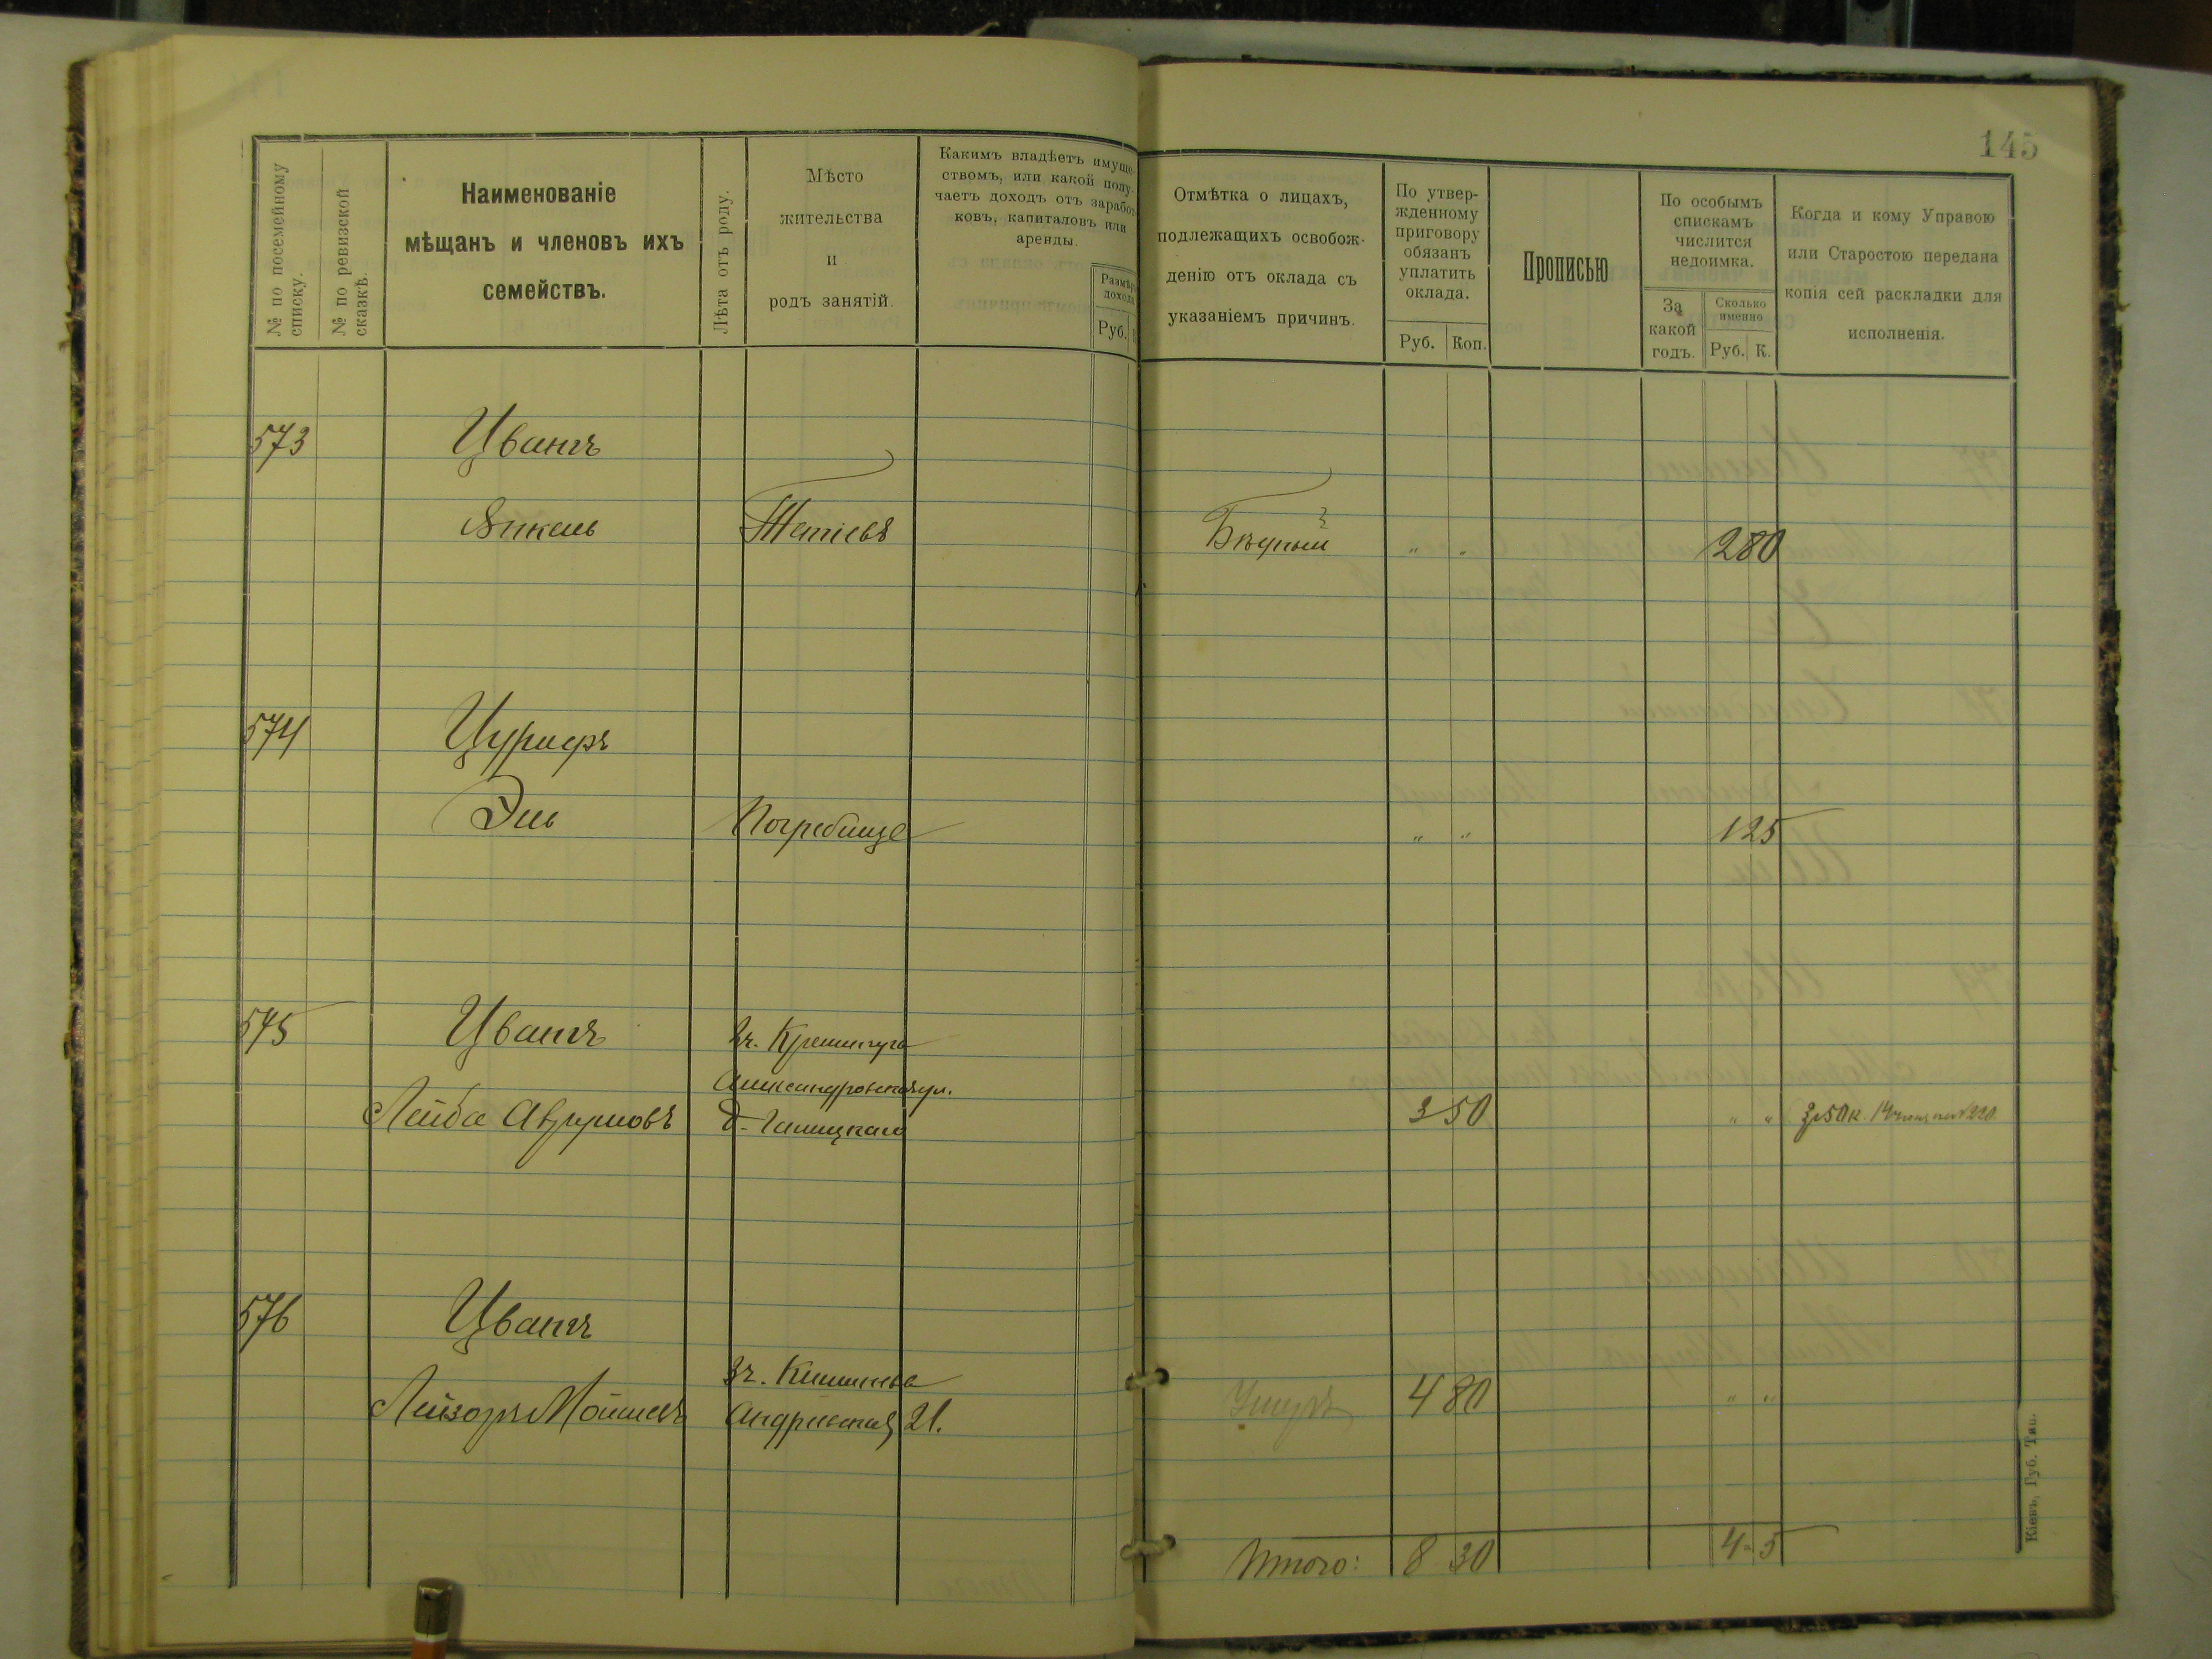 145
№ по посемейному списку.
№ по ревизской сказкѣ.
Наименованіе
мѣщанъ и членовъ ихъ
семействъ.
Лѣта отъ роду.
Мѣсто
жительства
и
родъ занятій.
Какимъ владѣетъ имуще-
ствомъ, или какой полу-
чаетъ доходъ отъ заработ-
ковъ, капиталовъ или
аренды.
Размѣръ
дохода
Руб.
Отмѣтка о лицахъ,
подлежащихъ освобож-
денію отъ оклада съ
указаніемъ причинъ.
По утвер-
жденному
приговору
обязанъ
уплатить
оклада.
Руб. Коп.
Прописью
По особымъ
спискамъ
числится
недоимка.
За
какой
годъ.
Сколько
именно
Руб. К.
Когда и кому Управою
или Старостою передана
копія сей раскладки для
исполненія.
573 Цвангъ
Янкель Тетіевъ Бѣдный " " 2 80
574 Цурифъ
Эль Погребище " " 1 25
575 Цвангъ Зч. Кременчуга
Александровская ул.
Лейба Аврумовъ д. Галицкаго 3 50 " "
576 Цвангъ
Зч. Кишинева
Лейзоръ Мошковъ 21. Умеръ 4 80 " "
Итого: 8 30 4 5
Кіевъ, Губ. Тип.